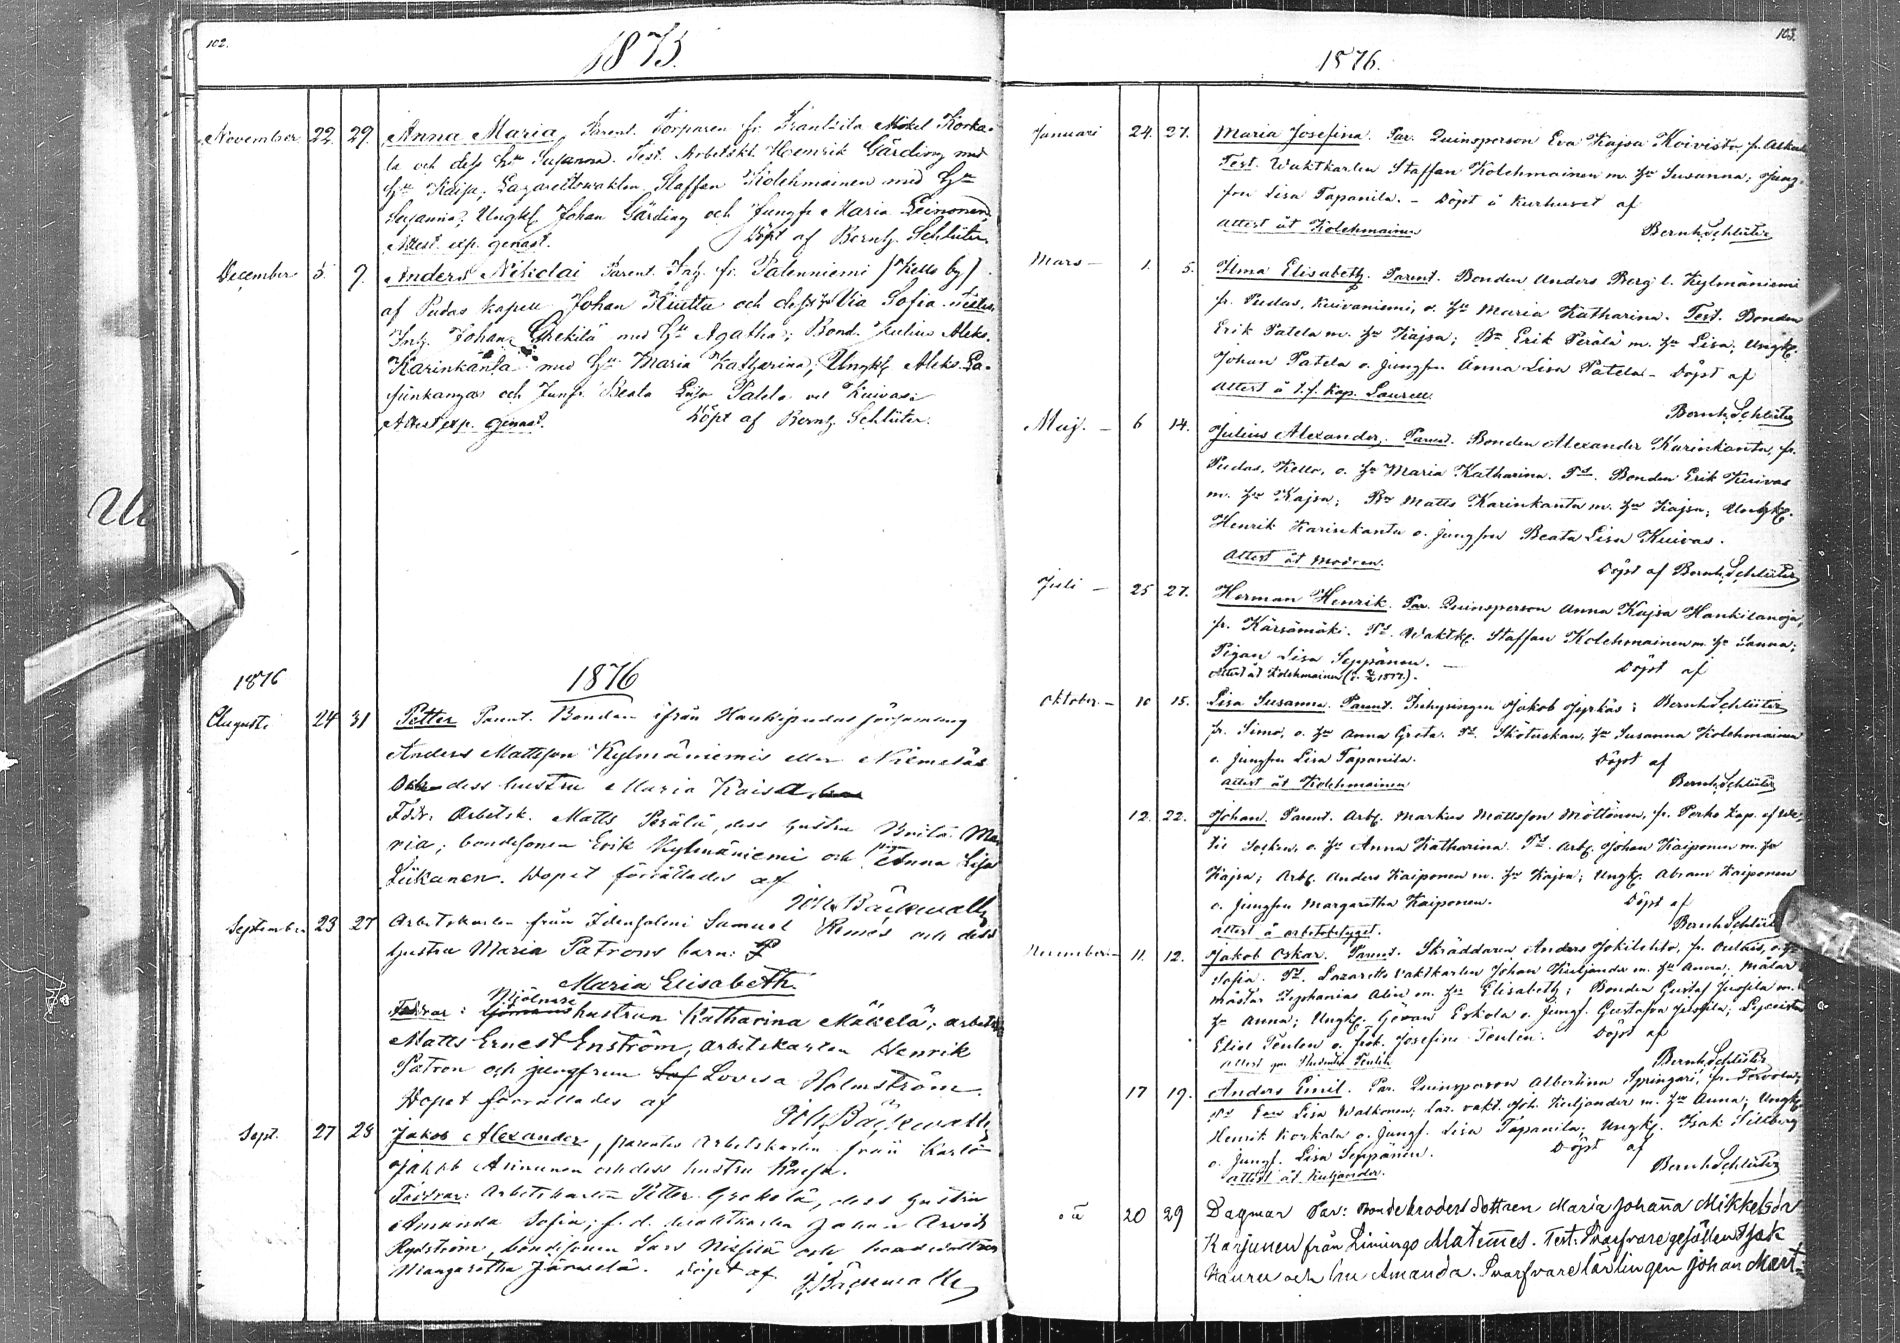 102.
1875.
November 22 29 Anna Maria, Parent. Torparen fr. Frantsila Mikel Korka-
la och dess Hu Susanna. Test. Arbetskl. Henrik Gärding med
Hu Kaisa; Lazarettswakten Staffan Kolehmainen med Hu
Susanna; Ungkl Johan Gärding och Jungfr Maria Leinonen.
Attest. exp. genast. Döpt af Bernh. Schlüter.
December 5. 9. Anders Nikolai Parent. Inh. fr. Patenniemi (Kello by)
af Pudas kapell Johan Kiuttu och dess Hu Sofia
Inh. Johan med Hu Agatha; Bond. Julius Aleks.
Karinkanta med Hu Maria Katharina; Ungkl Aleks. La-
junkangas och Jungfr Beata Lisa Patela vel Kuivas.
Attest exp. genast. Döpt af Bernh. Schlüter.
1876
1876
Augusti 24 31 Petter Parent. Bonden ifrån Haukipudas församling
Anders Mattsson Kylmäniemi eller Niemelä
Och dess hustru Maria Kaisa
Fadr. Arbetsk. Matts Perälä, dess hustru Brita Ma-
ria; bondesonen Erik Kylmäniemi och pigan Anna Lisa
Liikanen. Dopet förrättades af
Joh. Bäckwall
September 23 27 Arbetskarlen från Idensalmi Samuel och dess
hustru Maria Patrons barn:
Maria Elisabeth.
Faddrar: Mjölnare hustrun Katharina Mäkelä; arbetsk
Matts Ernest Enström, arbetskarlen Henrik
Patron och jungfrun Lovisa Holmström.
Dopet förrättades af
Joh. Bäckwall
Sept. 27 28 Jakob Alexander, parentes Arbetskarlen från Karlö
Jakob Arinunen och dess hustru Kaisa.
Faddrar: Arbetskarlen Petter Grekelä, dess hustru
Amanda Sofia; f. d. waktkarlen Johan Arvid
Rydström, bondesonen Lars Nissilä och bondedottren
Margaretha Järvelä. Döpt af J. Bäckwall
103.
1876.
Januari 24. 27. Maria Josefina. Par. Quinsperson Eva Kajsa Koivisto, fr.
Test. Waktkarlen Staffan Kolehmainen m. Hu Susanna; Jung-
frn Lisa Tapanila. – Döpt å Kurhuset af
Attest åt Kolehmainen Bernh. Schlüter
Mars – 1. 5. Ilma Elisabeth. Parent. Bonden Anders Berg l. Kylmäniemi
fr. Pudas, Kuivaniemi, o. Hu Maria Katharina. Test. Bonden
Erik Patela m. Hu Kajsa; Bn Erik Perälä m. Hu Lisa; Ungkl.
Johan Patela o. jungfrn Anna Lisa Patela – Döpt af
Attest å t.f. Kap. Laurell. Bernh. Schlüter
Maj. – 6 14. Julius Alexander. Parent. Bonden Alexander Karinkanta, fr.
Pudas, Kello, o. Hu Maria Katharina. Tt. Bonden Erik Kuivas
m. Hu Kajsa; Bn Matts Karinkanta m. Hu Kajsa; Ungkl.
Henrik Karinkanta o. jungfrn Beata Lisa Kuivas.
Attest åt modren. Döpt af Bernh. Schlüter
Juli – 25 27. Herman Henrik. Par. Quinsperson Anna Kajsa Hankilanoja,
fr. Kärsämäki. Tt. Waktkl. Staffan Kolehmainen m. Hu Sanna;
Pigan Lisa Seppänen. – Döpt af
Attest åt Kolehmainen
Oktober. – 10 15. Lisa Susanna. Parent. Inhysingen Jakob Jyrkäs; Bernh. Schlüter
fr. Simo, o. Hu Anna Greta. Tt. Sköterskan, Hu Susanna Kolehmainen
o. jungfrn Lisa Tapanila. Döpt af
Attest åt Kolehmainen Bernh. Schlüter
12. 22. Johan. Parent. Arb. Markus Mattsson Möttönen, fr. Perho kap. af We-
til Sockn, o. Hu Anna Katharina. Tt. Arb. Johan Kaiponen m. Hu
Kajsa; Arb. Anders Kaiponen m. Hu Kajsa; Ungk. Abram Kaiponen
o. jungfrn Margaretha Kaiponen. Döpt af
Attest å arbetsbetyget. Bernh. Schlüter
November. – 11. 12. Jakob Oskar. Parent. Skräddaren Anders Jokilehto, fr. Pulkis, o. Hu
Sofia. Tt. Lazaretts vaktkarlen Johan Kuljander m. Hu Anna; Målar
mästar Zephanias Alin m. Hu Elisabeth; Bonden Gustaf Jussila m.
Hu Anna; Ungk. Göran Eskola o. Jungf. Gustafva Jussila; Lyceisten
Eliel Tenlén o. Frök. Josefina Tenlén. Döpt af
Bernh. Schlüter
17 19. Anders Emil. Par. Quinsperson Albertina Springari, fr. Tervola;
Tt Lisa Walkonen; Laz. vakt. Joh. Kuljander m. Hu Anna; Ungk.
Henrik Korkala o. Jungf. Lisa Tapanila; Ungk. Isak Sillberg
o. Jungf. Lisa Seppänen. Döpt af
Attest åt Kuljander. Bernh. Schlüter
20 29 Dagmar Par: Bondebroders Dottren Maria Johanna Mikkelsdr
Karjunen från Limingo Matemes. Test. Svarfvaregesällen Isak
Kauru och hu Amanda. Svarfvarelärlingen Johan Mart-